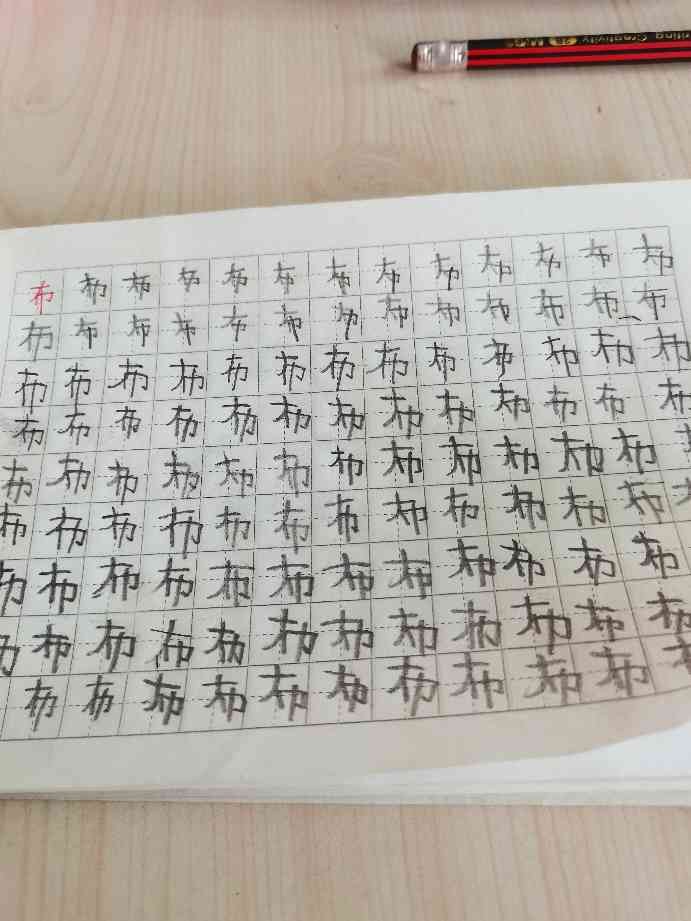 riting Creativity 2B M&G
布布布布布布布布布布布布布
布布布布布布布布布布布布布
布布布布布布布布布布布布布
布布布布布布布布布布布布布
布布布布布布布布布布布布
布布布布布布布布布布布布布
布布布布布布布布布布布布
布布布布布布布布布布布布
布布布布布布布布布布